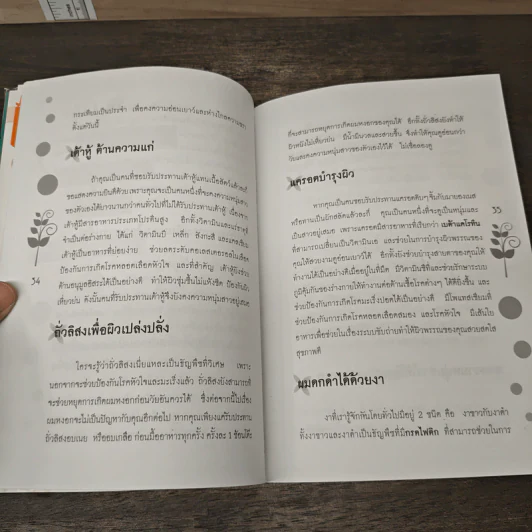 กระเทียมเป็นประจำ เพื่อคงความอ่อนเยาว์และห่างไกลความชรา
ตั้งแต่วันนี้
เต้าหู้ ต้านความแก่
ถ้าคุณเป็นคนที่ชอบรับประทานเต้าหู้แทนเนื้อสัตว์แล้วละก็
ขอแสดงความยินดีด้วยเพราะคุณจะเป็นคนหนึ่งที่จะคงความหนุ่มสาว
ของตัวเองได้ยาวนานกว่าคนทั่วไปที่ไม่ได้รับประทานเต้าหู้ เนื่องจาก
เต้าหู้มีสารอาหารประเภทโปรตีนสูง อีกทั้งวิตามินและแร่ธาตุที่
จำเป็นต่อร่างกาย ได้แก่ วิตามินบี เหล็ก สังกะสี และแคลเซียม
เต้าหู้เป็นอาหารที่ย่อยง่าย ช่วยลดระดับคอเลสเตอรอลในเลือด
ป้องกันการเกิดโรคหลอดเลือดหัวใจ และที่สำคัญ เต้าหู้ยังช่วย
ต้านอนุมูลอิสระได้เป็นอย่างดี ทำให้ผิวชุ่มชื้นไม่แห้งซีด ป้องกันผิว
เหี่ยวย่น ดังนั้นคนที่รับประทานเต้าหู้จึงยังคงความหนุ่มสาวอยู่เสมอ
54
ถั่วลิสงเพื่อผิวเปล่งปลั่ง
ใครจะรู้ว่าถั่วลิสงเนี่ยแหละเป็นธัญพืชที่วิเศษ เพราะ
นอกจากจะช่วยป้องกันโรคหัวใจและมะเร็งแล้ว ถั่วลิสงยังสามารถที่
จะช่วยหยุดการเกิดผมหงอกก่อนวัยอันควรได้ ซึ่งต่อจากนี้ไปเรื่อง
ผมหงอกจะไม่เป็นปัญหากับคุณอีกต่อไป หากคุณเพียงแค่รับประทาน
ถั่วลิสงอบเนย หรืออบเกลือ ก่อนมื้ออาหารทุกครั้ง ครั้งละ 1 ช้อนโต๊ะ
ก็จะสามารถหยุดการเกิดผมหงอกของคุณได้ อีกทั้งถั่วลิสงยังทำให้
ผิวหนังไม่เหี่ยวย่น มีน้ำมีนวลและสวยขึ้น จึงทำให้คุณดูอ่อนกว่า
วัยและคงความหนุ่มสาวของตัวเองไว้ได้ ไม่เชื่อลองดู
แครอตบำรุงผิว
หากคุณเป็นคนชอบรับประทานแครอตดิบๆ จิ้มกับมายองเนส
หรือทานเป็นผักสลัดแล้วละก็ คุณเป็นคนหนึ่งที่จะดูเป็นหนุ่มและ
เป็นสาวอยู่เสมอ เพราะแครอตมีสารอาหารที่เรียกว่า เบต้าแคโรทีน
ที่สามารถเปลี่ยนเป็นวิตามินเอ และช่วยในการบำรุงผิวพรรณของ
คุณให้สวยงามดูอ่อนเยาว์ได้ อีกทั้งยังช่วยบำรุงสายตาของคุณให้
ทำงานได้เป็นอย่างดีเมื่ออยู่ในที่มืด มีวิตามินซีที่และช่วยรักษาระบบ
ภูมิคุ้มกันของร่างกายให้ทำงานต่อต้านเชื้อโรคต่างๆ ได้ดียิ่งขึ้น และ
ช่วยป้องกันการเกิดโรคมะเร็งปอดได้เป็นอย่างดี มีโพแทสเซียมที่
ช่วยป้องกันการเกิดโรคหลอดเลือดสมอง และโรคหัวใจ มีเส้นใย
อาหารเพื่อช่วยในเรื่องระบบขับถ่ายทำให้ผิวพรรณของคุณสวยสดใส
สุขภาพดี
55
ผมดกดำได้ด้วยงา
งาที่เรารู้จักกันโดยทั่วไปมีอยู่ 2 ชนิด คือ งาขาวกับงาดำ
ทั้งงาขาวและงาดำเป็นธัญพืชที่มีกรดไฟติก ที่สามารถช่วยในการ